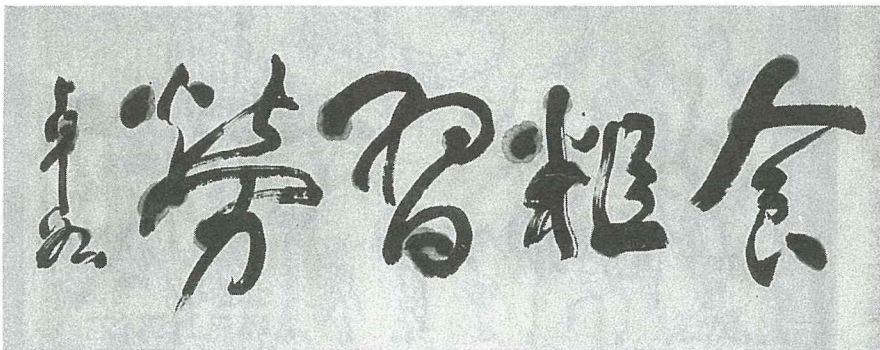 食粗習勞